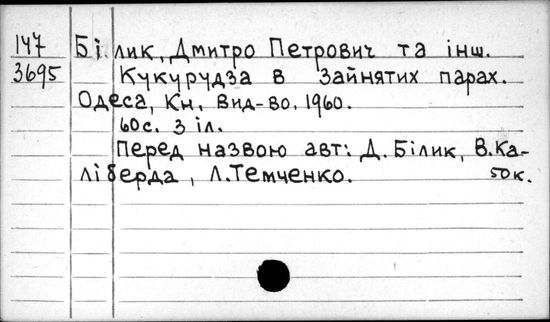 147 Білик, Дмитро Петрович та інш.
3695 Кукурудза в зайнятих парах.
Одеса, Кн. вид-во, 1960.
60с. З іл.
Перед назвою авт: Д. Білик, В. Ка-
ліберда, Л. Темченко. 50к.